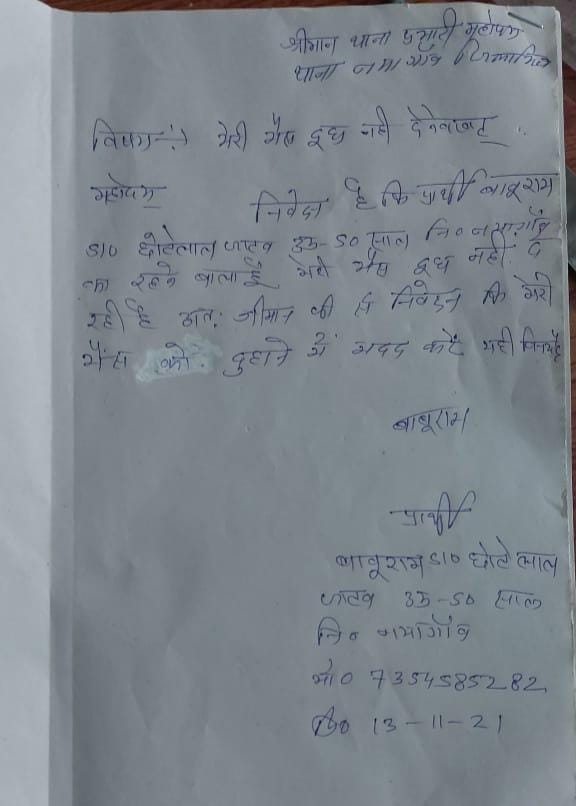 श्रीमान थाना प्रभारी महोदय
थाना नयागाँव जिला भिण्ड
विषय:- मेरी भैंस दूध नहीं देने बावत्
महोदय
निवेदन है कि प्रार्थी बाबूराम
S/o छोटेलाल जाटव उम्र-50 साल नि० नयागाँव
का रहने वाला है मेरी भैंस दूध नहीं दे
रही है अतः श्रीमान जी से निवेदन कि मेरी
भैंस को दुहाने में मदद करें यही विनय है
बाबूराम
प्रार्थी
बाबूराम S/o छोटेलाल
जाटव उम्र-50 साल
नि० नयागाँव
मो० 7354585282
दि० 13-11-21